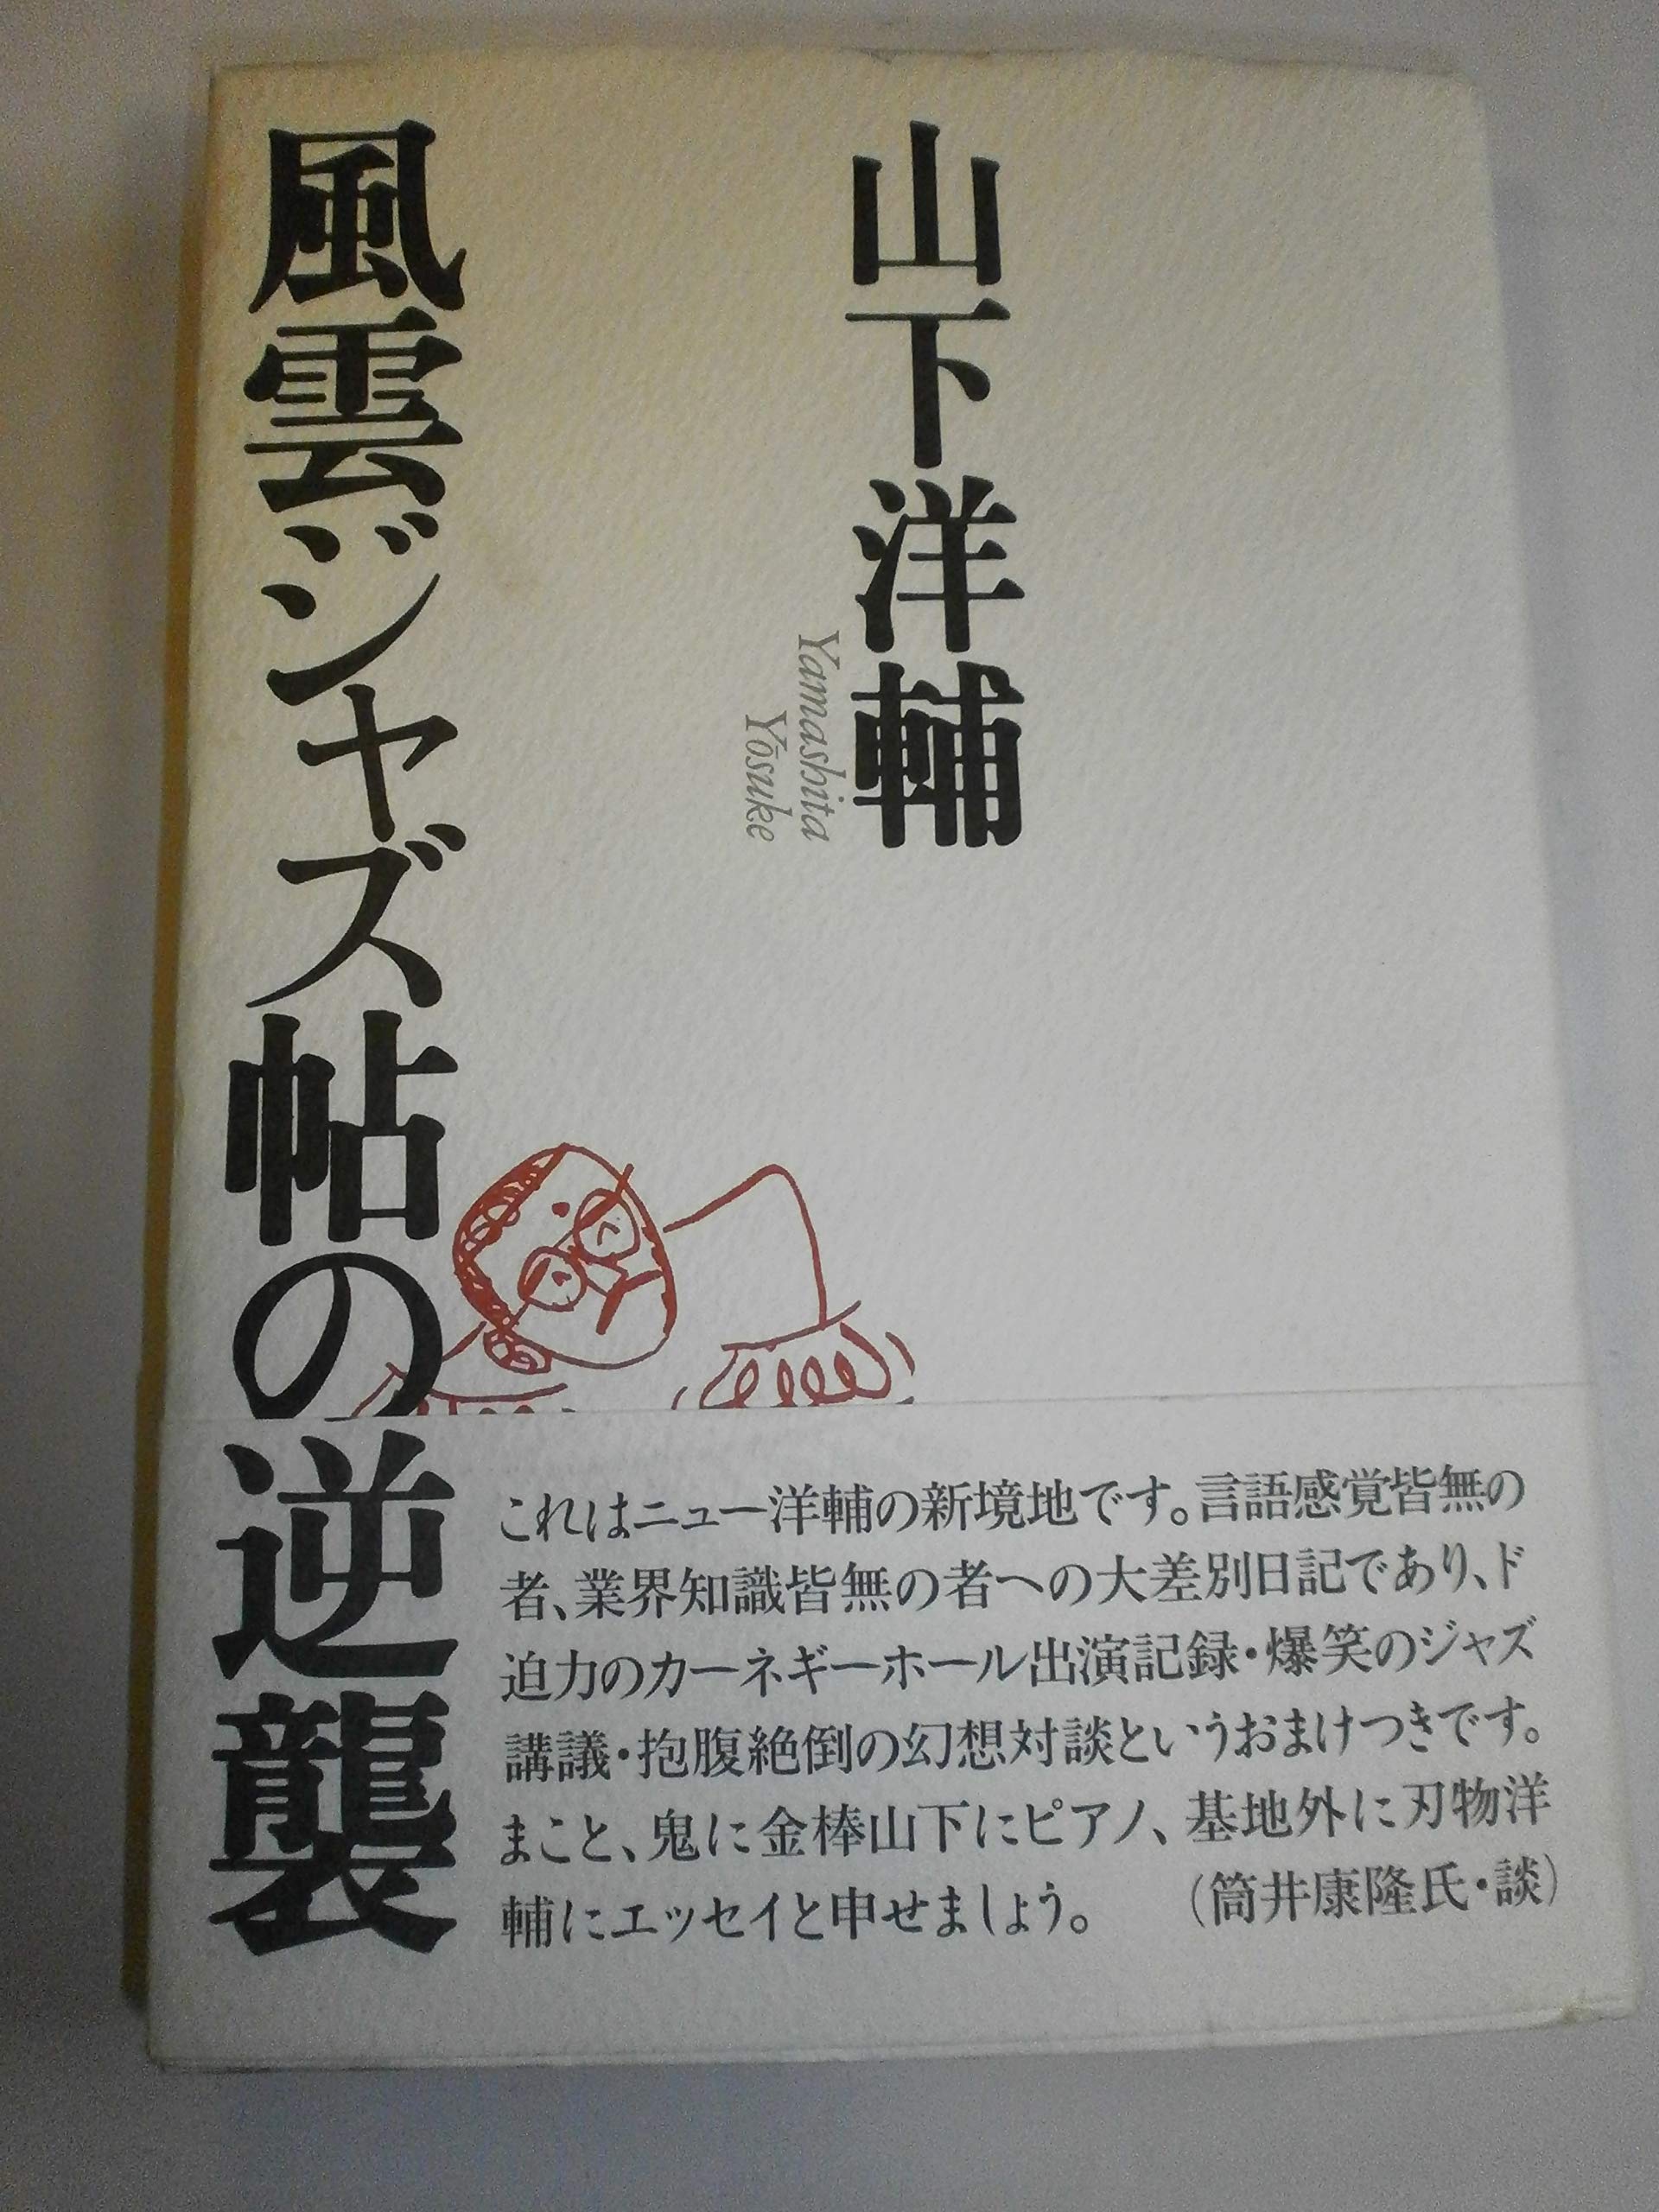 山下洋輔
Yamashita
Yōsuke
風雲ジャズ帖の逆襲
これはニュー洋輔の新境地です。言語感覚皆無の
者、業界知識皆無の者への大差別日記であり、ド
迫力のカーネギーホール出演記録・爆笑のジャズ
講議・抱腹絶倒の幻想対談というおまけつきです。
まこと、鬼に金棒山下にピアノ、基地外に刃物洋
輔にエッセイと申せましょう。　（筒井康隆氏・談）